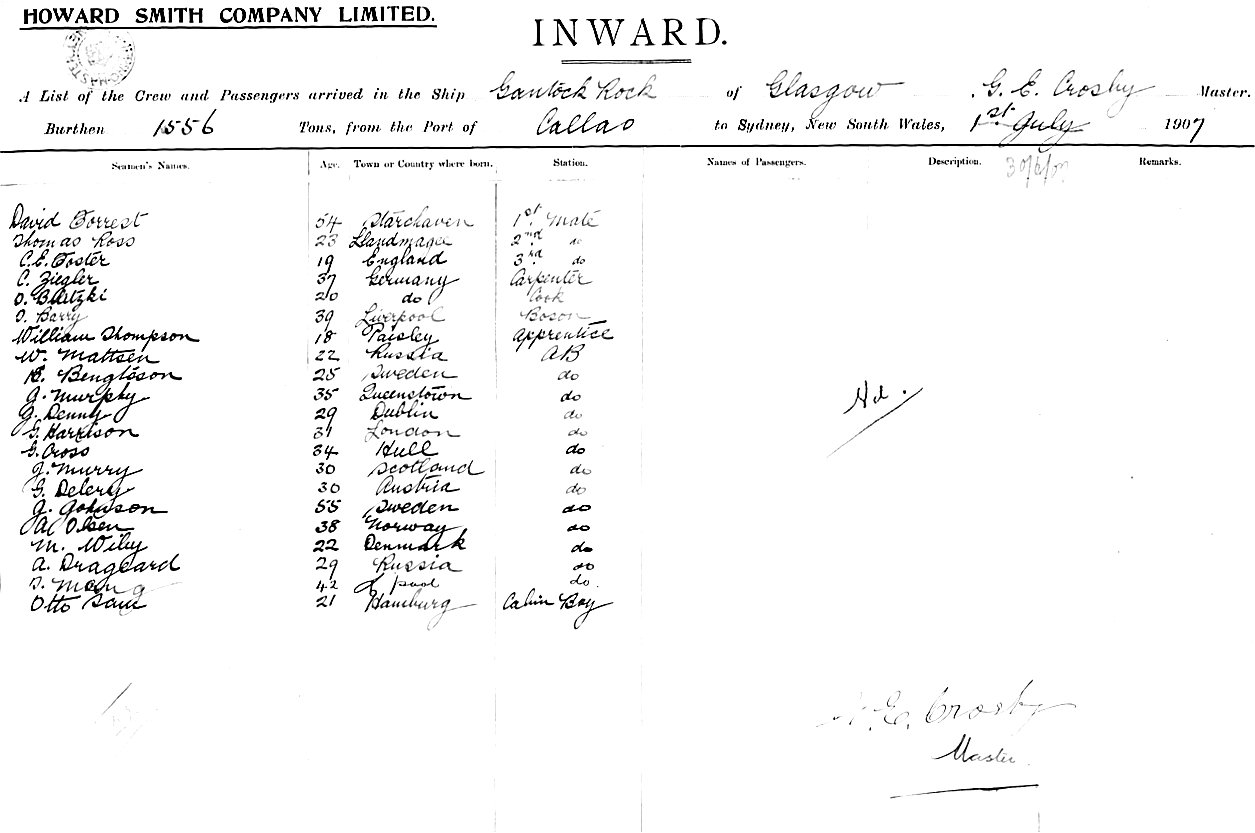 HOWARD SMITH COMPANY LIMITED.
INWARD.
A List of the Crew and Passengers arrived in the Ship Gantock Rock of Glasgow G. E. Crosby Master.
Burthen 1556 Tons, from the Port of Callao to Sydney, New South Wales, 1st July 1907
Seamen's Names. Age. Town or Country where born. Station. Names of Passengers. Description. Remarks.
30/6/07
David Forrest 54 Starchaven 1st Mate
Thomas Ross 23 Llandmagee 2nd do
C.E. Foster 19 England 3rd do
C. Ziegler 37 Germany Carpenter
O. 20 do Cook
O. Barry 39 Liverpool Boson
William Thompson 18 Paisley Apprentice
W. Mattsen 22 Russia AB
Bengtson 25 Sweden do
J. Murphy 35 Queenstown do
J. Denny 29 Dublin do
G. Harrison 31 London do
G. Cross 34 Hull do
J. Murry 30 Scotland do
G. Delery 30 Austria do
J. Johnson 55 Sweden do
A. Olsen 38 Norway do
M. Wiby 22 Denmark do
A. Drageard 29 Russia do
42 L pool do.
Otto 21 Hamburg Cabin Boy
Nil.
E. Crosby
Master.